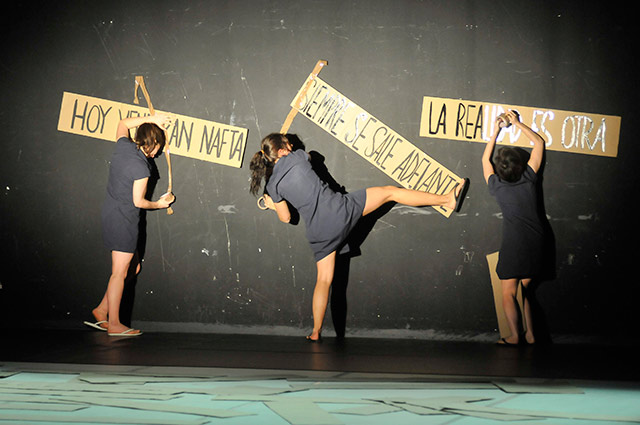 HOY NAFTA
SIEMPRE SE SALE ADELANTE
LA REALIDAD ES OTRA